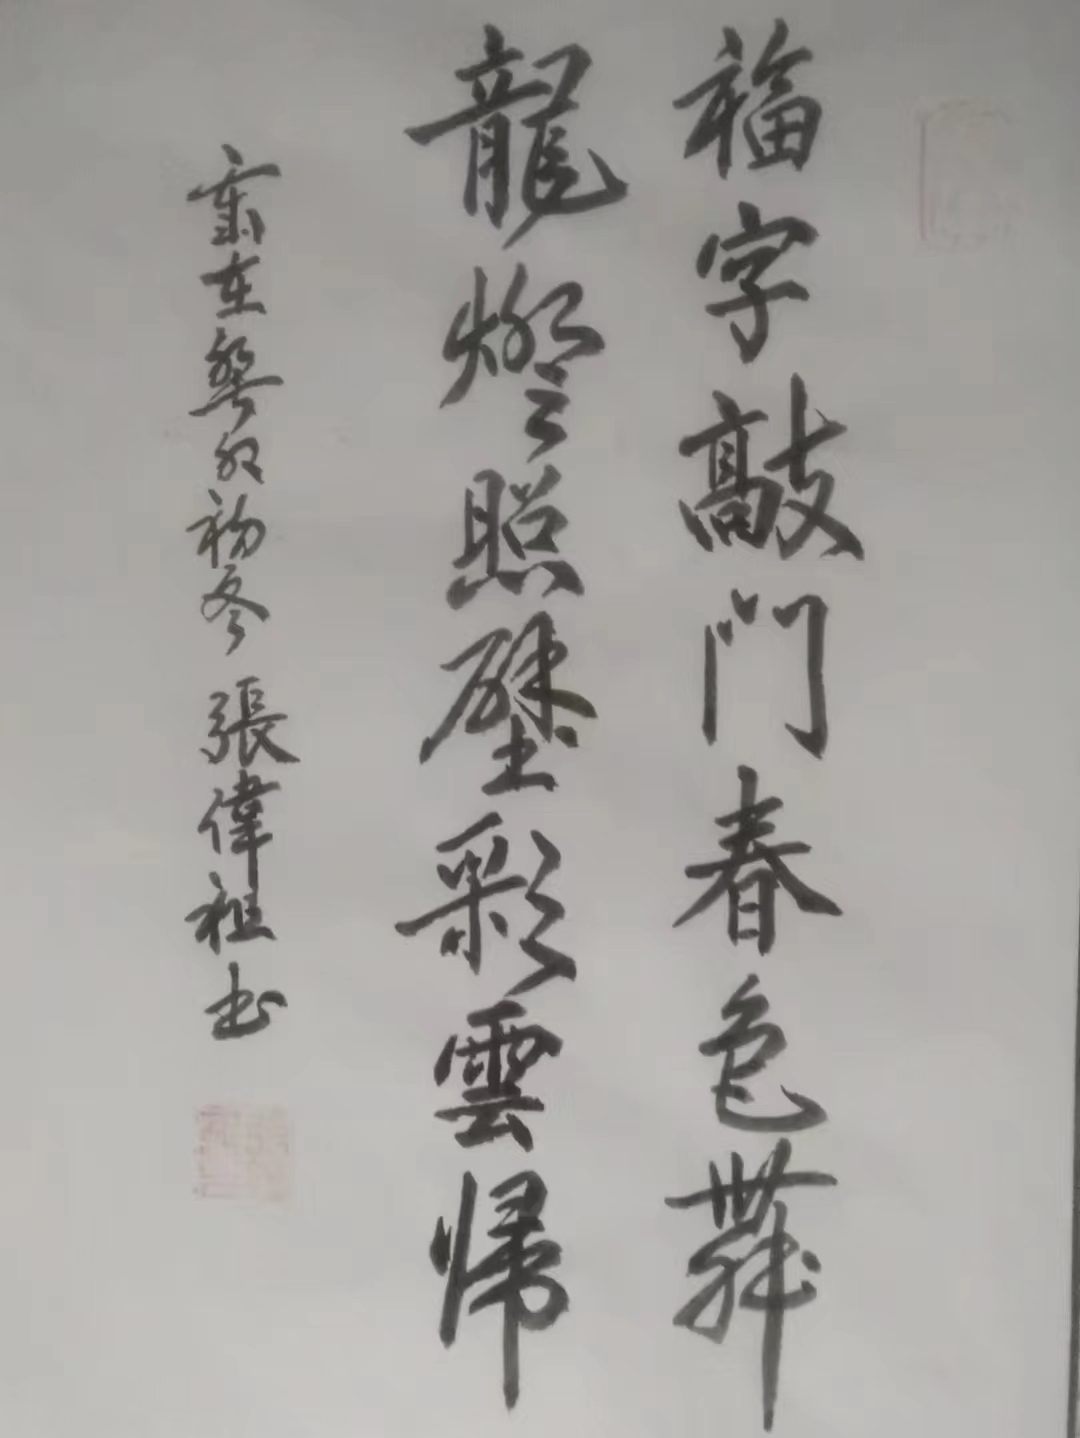 福字敲門春色舞
龍燈照壁彩雲帰
歲在癸卯初冬 張偉祖書